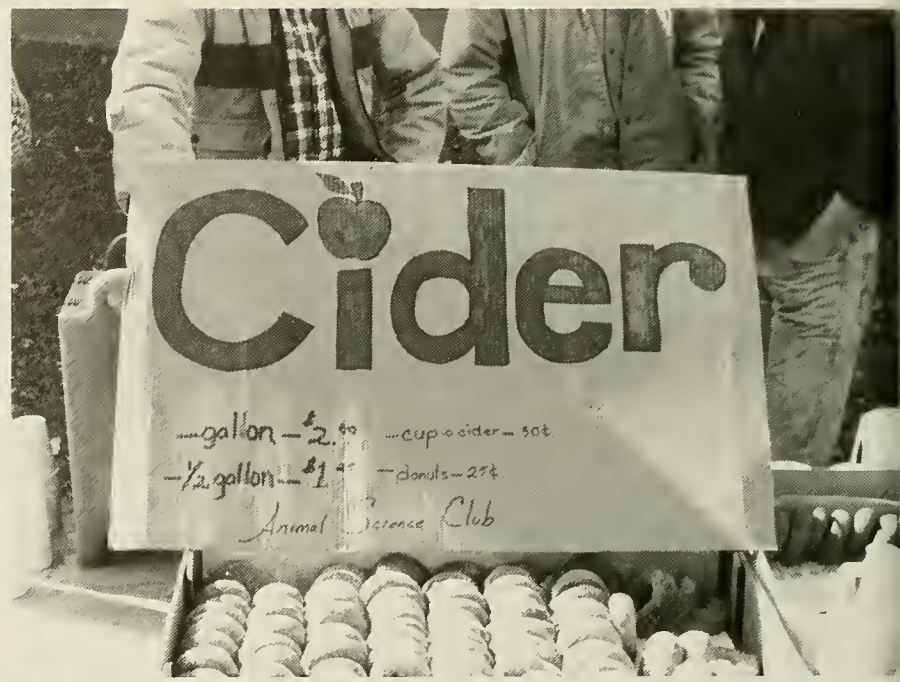 Cider
—gallon—$2. —cup o cider—30¢
—1/2 gallon—$1. —donuts—25¢
Animal Science Club